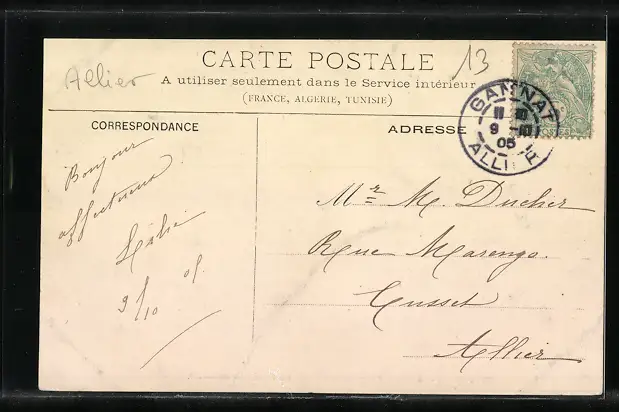 Allier
13
CARTE POSTALE
A utiliser seulement dans le Service intérieur
(FRANCE, ALGERIE, TUNISIE)
GANNAT
9
05
ALLIER
POSTES
CORRESPONDANCE
Bonjour
affectueux
9/10 05
ADRESSE
Mr M. Ducher
Rue Marengo
Cusset
Allier